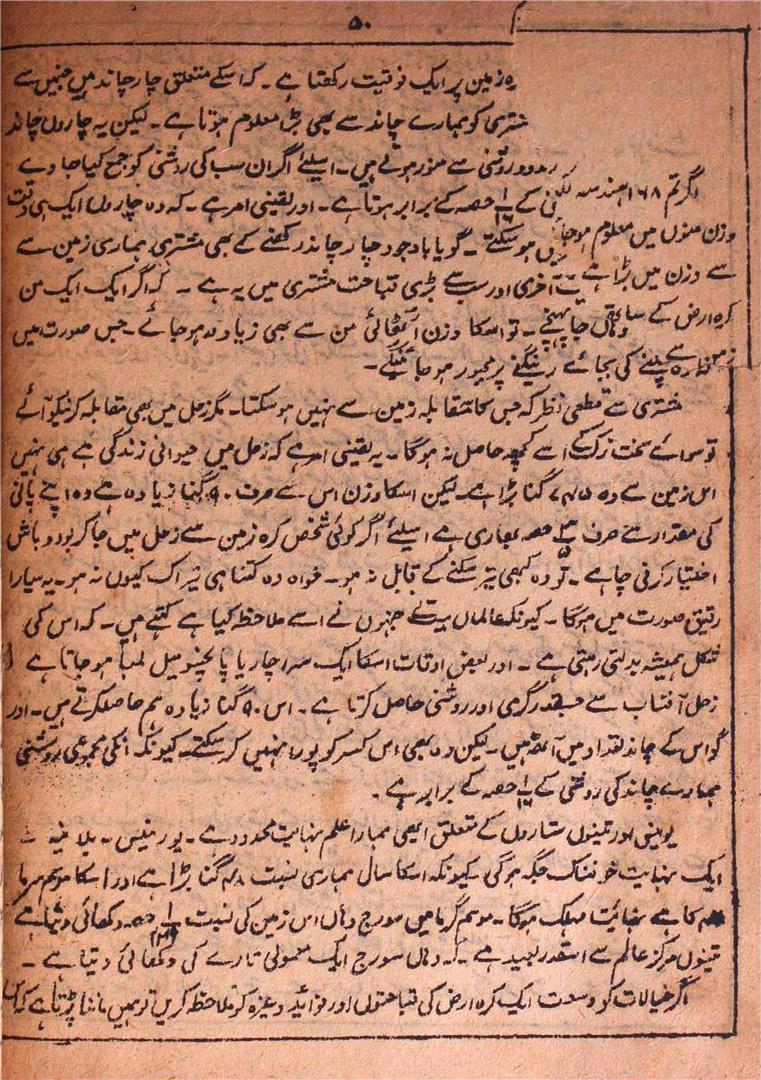 ۵۰
یہ زمین پر ایک فوقیت رکھتا ہے ۔ کہ اسکے متعلق چار چاند ہیں جنہیں سے
مشتری کو ہمارے چاند سے بھی بڑا معلوم ہوتا ہے ۔ لیکن یہ چاروں چاند
روشنی سے منور ہوتے ہیں ۔ اسلئے اگر ان سب کی روشنی کو جمع کیا جاوے
اگر تم ۱۶۸ ہندسہ
کے ۱/۱۶ حصہ کے برابر ہوتا ہے ۔ اور یقینی امر ہے ۔ کہ وہ چاروں ایک ہی وقت
وزن منوں میں معلوم ہو جا
نہیں ہو سکتے ۔ گویا باوجود چار چاند رکھنے کے بھی مشتری ہماری زمین سے
سے وزن میں بڑا ہے
آخری اور سب سے بڑی قباحت مشتری میں یہ ہے ۔ کہ اگر ایک ایک من
کرہ ارض کے
وہاں جا پہنچے ۔ تو اسکا وزن اڑھائی من سے بھی زیادہ ہو جائے ۔ جس صورت میں
چلنے کی بجائے رینگنے پر مجبور ہو جائینگے ۔
مشتری سے قطعی نظر کہ جس کا مقابلہ زمین سے نہیں ہو سکتا ۔ مگر زحل میں بھی مقابلہ کرنیکو آئے
تو سوائے سخت زک کے اسے کچھ حاصل نہ ہوگا ۔ یہ یقینی امر ہے کہ زحل میں حیوانی زندگی ہے ہی نہیں
اس زمین سے وہ ۷۴۵ گنا بڑا ہے لیکن اسکا وزن اس سے صرف ۹۰ گنا زیادہ ہے وہ اپنے پانی
کی مقدار سے صرف حصہ بھاری ہے اسلئے اگر کوئی شخص کرہ زمین سے زحل میں جا کر بود و باش
اختیار کرنی چاہے ۔ تو وہ کبھی تیر سکنے کے قابل نہ ہو ۔ خواہ وہ کتنا ہی تیراک کیوں نہ ہو ۔ یہ سیارا
رقیق صورت میں ہوگا ۔ کیونکہ عالمان ہیئت جنہوں نے اسے ملاحظہ کیا ہے کہتے ہیں ۔ کہ اس کی
شکل ہمیشہ بدلتی رہتی ہے ۔ اور بعض اوقات اسکا ایک سرا چار یا پانچسو میل لمبا ہو جاتا ہے
زحل آفتاب سے جسقدر گرمی اور روشنی حاصل کرتا ہے ۔ اس ۹۰ گنا زیادہ ہم حاصل کرتے ہیں ۔ اور
گو اس کے چاند تعداد میں آٹھ ہیں ۔ لیکن وہ بھی اس کسر کو پورا نہیں کر سکتے ۔ کیونکہ انکی مجموعی روشنی
ہمارے چاند کی روشنی کے ۱/۱۶ حصہ کے برابر ہے ۔
یونہی اور تینوں ستاروں کے متعلق ابھی ہمارا علم نہایت محدود ہے ۔ یورینس ۔ بلا شبہ
ایک نہایت خوفناک جگہ ہوگی کیونکہ اسکا سال ہماری نسبت ۸۴ گنا بڑا ہے اور اسکا موسم سرما
کا ہے نہائت مہلک ہوگا ۔ موسم گرما میں سورج وہاں اس زمین کی نسبت حصہ دکھائی دیتا ہے
تینوں مرکز عالم سے اسقدر بعید ہے ۔ کہ وہاں سورج ایک معمولی تارے کی دکھائی دیتا ہے ۔
اگر خیالات کو وسعت ایک کرہ ارض کی قباحتوں اور فوائد وغیرہ کو ملاحظہ کریں تو ہمیں ماننا پڑتا ہے کہ